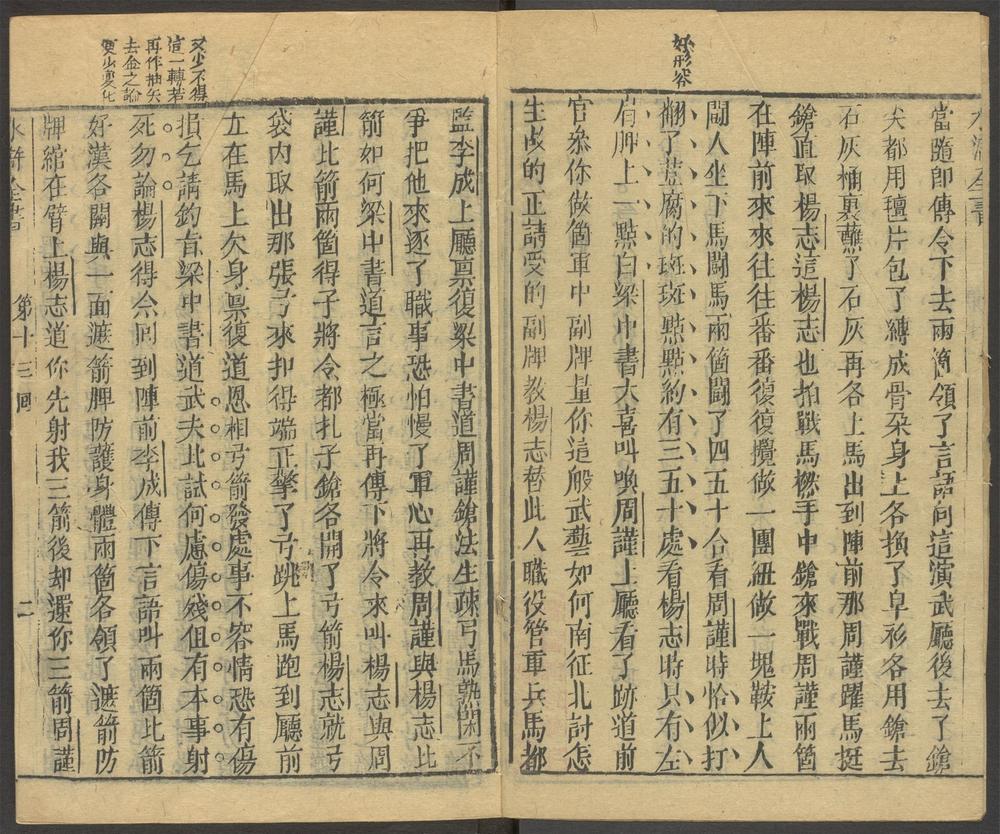 好形容
當隨即傳令下去兩箇領了言語向這演武廳後去了鎗
尖都用氊片包了縛成骨朶身上各換了皁衫各用鎗去
石灰桶裏蘸了石灰再各上馬出到陣前那周謹躍馬挺
鎗直取楊志這楊志也拍戰馬撚手中鎗來戰周謹兩箇
在陣前來來往往番番復復攪做一團紐做一塊鞍上人
鬪人坐下馬鬪馬兩箇鬪了四五十合看周謹時恰似打
翻了荳腐的斑斑點點約有三五十處看楊志時只有左
肩胛上一點白梁中書大喜叫喚周謹上廳看了跡道前
官叅你做箇軍中副牌量你這般武藝如何南征北討怎
生做的正請受的副牌教楊志替此人職役管軍兵馬都
又少不得
這一轉若
再作抽矢
去金之論
便少變化
監李成上廳禀復梁中書道周謹鎗法生疎弓馬熟閑不
爭把他來逐了職事恐怕慢了軍心再教周謹與楊志比
箭如何梁中書道言之極當再傳下將令來叫楊志與周
謹比箭兩箇得了將令都扎了鎗各關了弓箭楊志就弓
袋內取出那張弓來扣得端正擎了弓跳上馬跑到廳前
立在馬上欠身禀復道恩相弓箭發處事不容情恐有傷
損乞請鈞旨梁中書道武夫比試何慮傷殘但有本事射
死勿論楊志得令回到陣前李成傳下言語叫兩箇比箭
好漢各關與一面遮箭牌防護身體兩箇各領了遮箭防
牌綰在臂上楊志道你先射我三箭後却還你三箭周謹
第十三囘
二